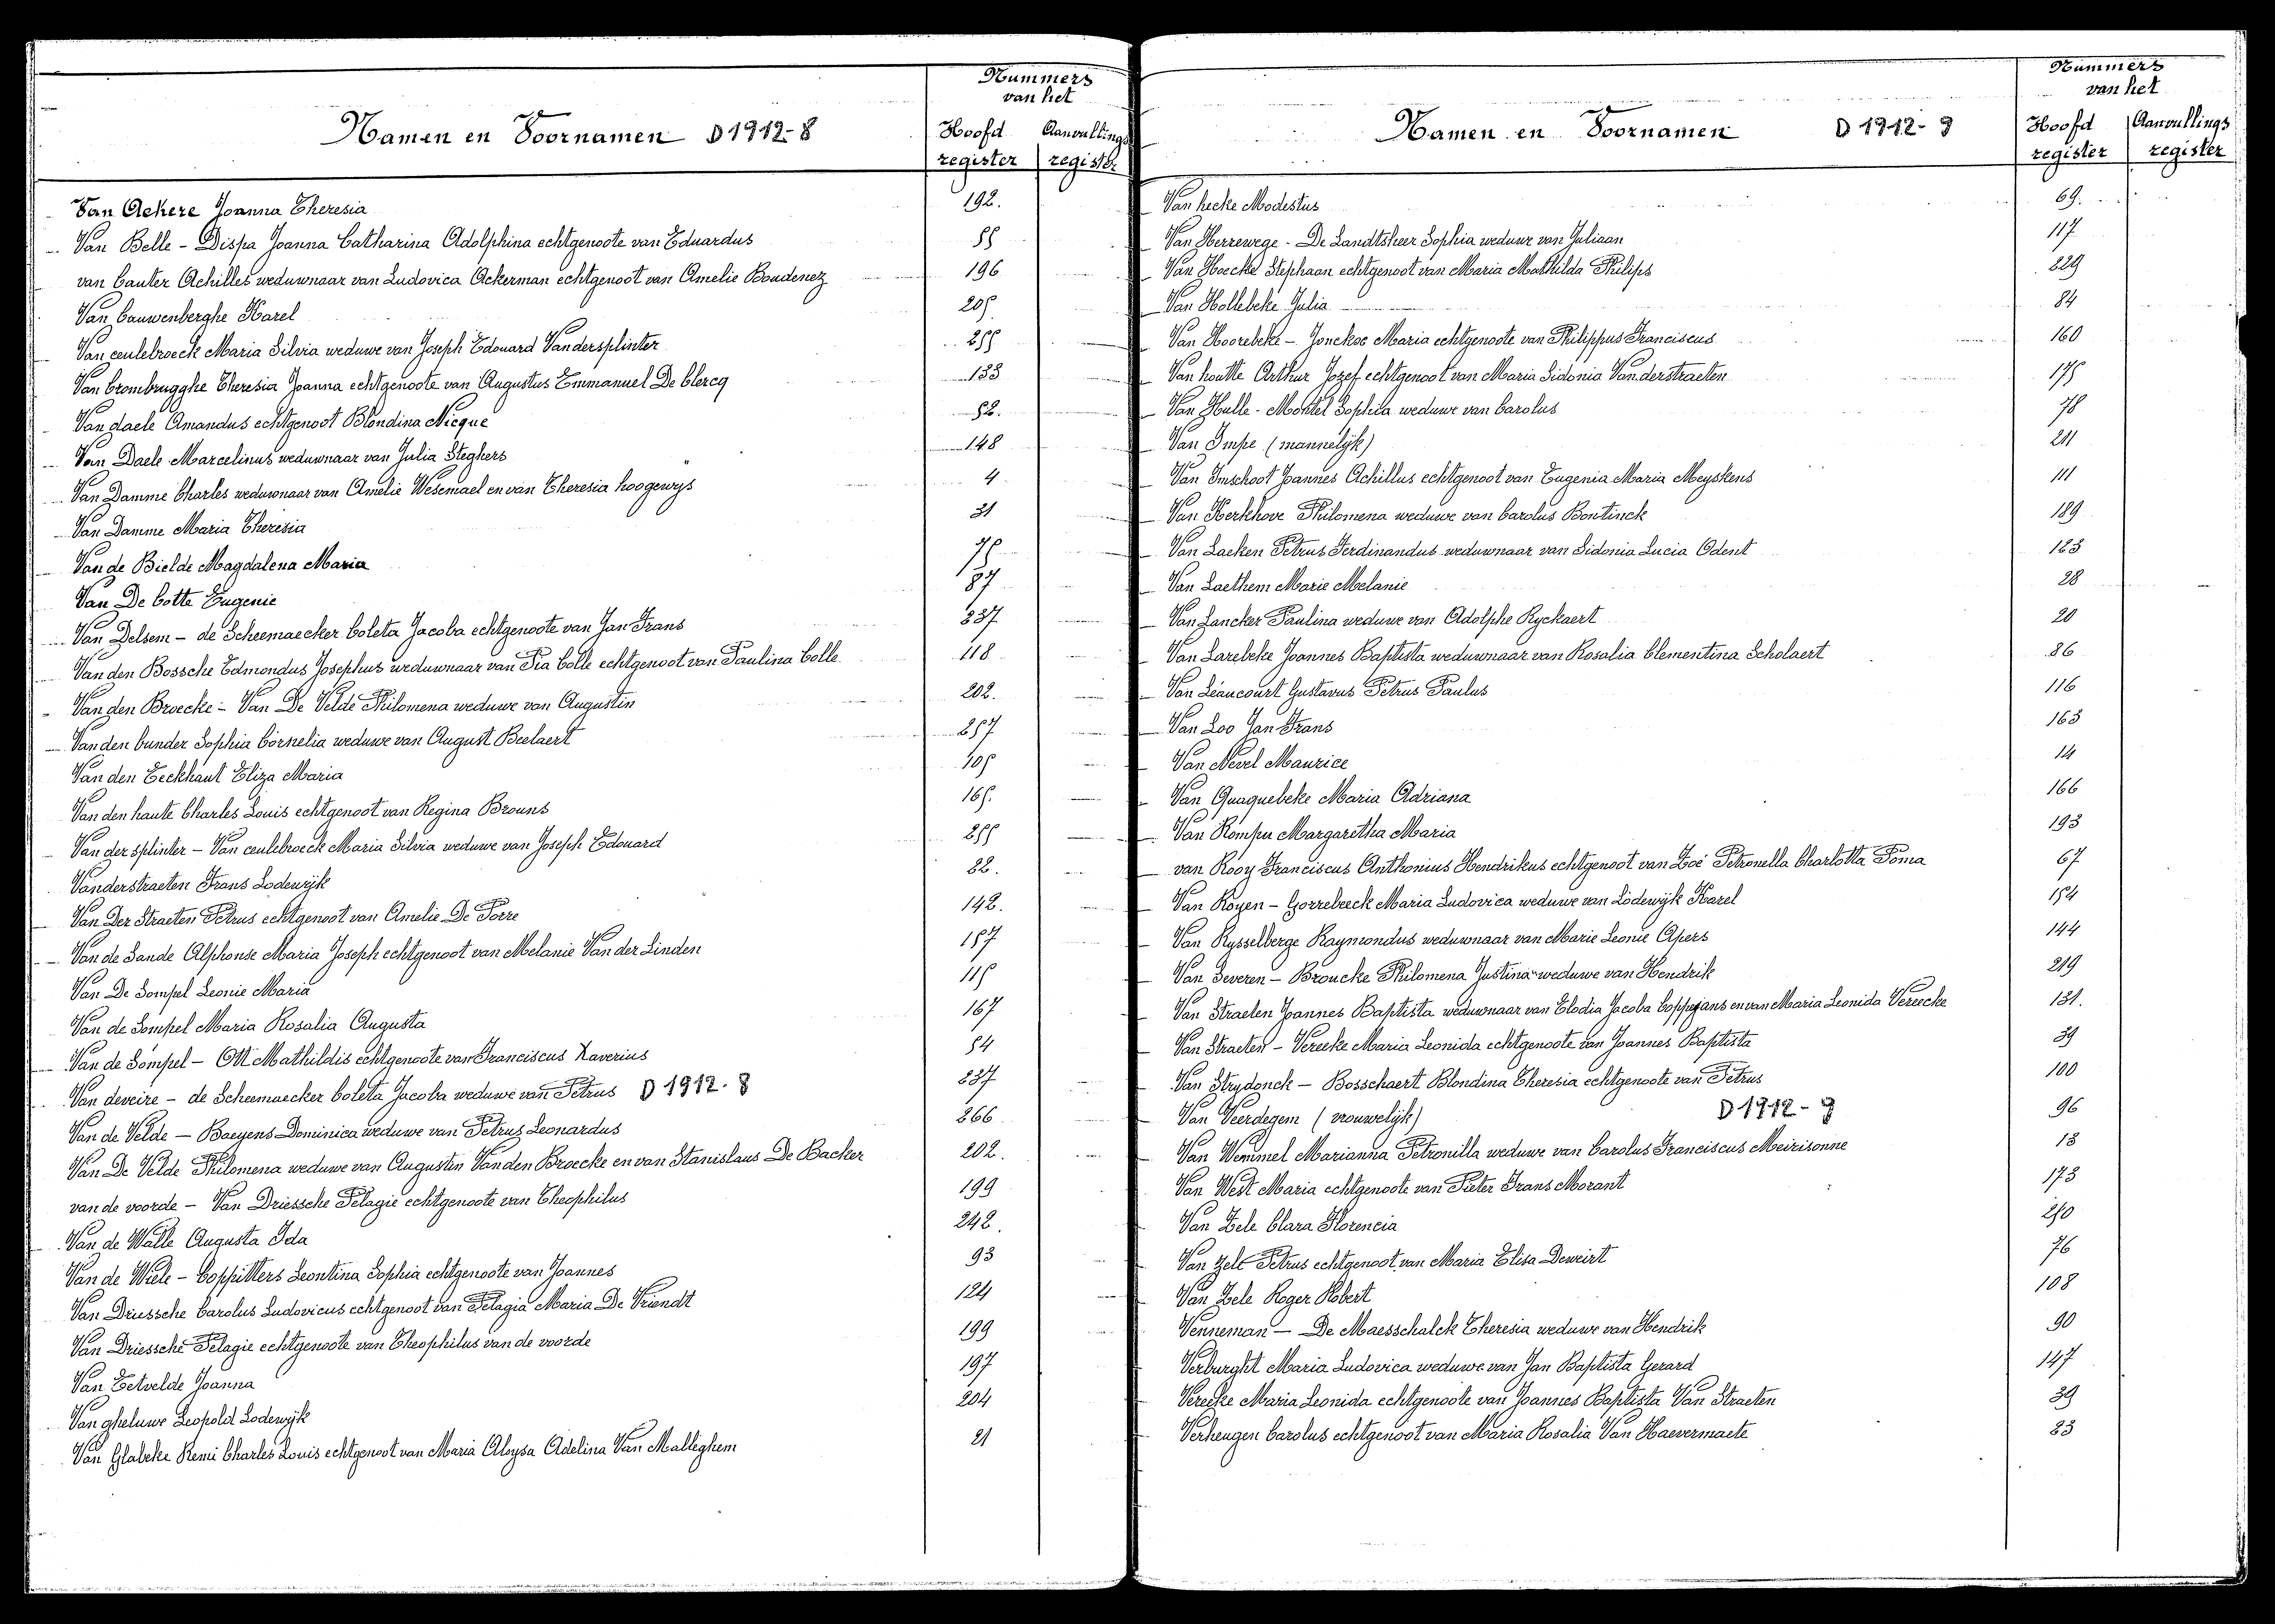 Namen en Voornamen D 1912-8
Nummers
van het
Hoofd register
Aanvullings register
Van Ackere Joanna Theresia 192.
Van Belle - Dispa Joanna Catharina Adolphina echtgenoote van Eduardus 55
van Cauter Achilles weduwnaar van Ludovica Ackerman echtgenoot van Amelie Boudenez 196
Van Cauwenberghe Karel 205
Van ceulebroeck Maria Silvia weduwe van Joseph Edouard Vandersplinter 255
Van Crombrugghe Theresia Joanna echtgenoote van Augustus Emmanuel De Clercq 133
Van daele Amandus echtgenoot Blondina Nicque 52.
Van Daele Marcelinus weduwnaar van Julia Steghers 148
Van Damme Charles weduwnaar van Amelie Wesemael en van Theresia hoogewijs 4
Van Damme Maria Theresia 31
Van de Bielde Magdalena Maria 75
Van De Cotte Eugenie 87
Van Delsem - de Scheemaecker Coleta Jacoba echtgenoote van Jan Frans 237
Van den Bossche Edmondus Josephus weduwnaar van Pia Colle echtgenoot van Paulina Colle 118
Van den Broecke - Van De Velde Philomena weduwe van Augustin 202.
Van den bunder Sophia Cornelia weduwe van August Beelaert 257
Van den Eeckhaut Eliza Maria 105
Van den haute Charles Louis echtgenoot van Regina Brouns 165.
Van der splinter - Van ceulebroeck Maria Silvia weduwe van Joseph Edouard 255
Vanderstraeten Frans Lodewijk 22.
Van Der Straeten Petrus echtgenoot van Amelie De Porre 142.
Van de Sande Alphonse Maria Joseph echtgenoot van Melanie Van der Linden 157
Van De Sompel Leonie Maria 115
Van de Sompel Maria Rosalia Augusta 167
Van de Sompel - Ott Mathildis echtgenoote van Franciscus Xaverius 54
Van deveire - de Scheemaecker Coleta Jacoba weduwe van Petrus D 1912-8 237
Van de Velde - Baeyens Dominica weduwe van Petrus Leonardus 266
Van De Velde Philomena weduwe van Augustin Vanden Broecke en van Stanislaus De Backer 202.
van de voorde - Van Driessche Pelagie echtgenoote van Theophilus 199
Van de Walle Augusta Ida 242.
Van de Wiele - Coppitters Leontina Sophia echtgenoote van Joannes 93
Van Driessche Carolus Ludovicus echtgenoot van Pelagia Maria De Vriendt 124
Van Driessche Pelagie echtgenoote van Theophilus van de voorde 199
Van Eetvelde Joanna 197
Van gheluwe Leopold Lodewijk 204
Van Glabeke Remi Charles Louis echtgenoot van Maria Aloysa Adelina Van Malleghem 21
Namen en Voornamen D 1912-9
Nummers
van het
Hoofd register
Aanvullings register
Van hecke Modestus 69.
Van Herrewege - De Landtsheer Sophia weduwe van Juliaan 117
Van Hoecke Stephaan echtgenoot van Maria Mathilda Philips 229
Van Hollebeke Julia 84
Van Hoorebeke - Jonckoe Maria echtgenoote van Philippus Franciscus 160
Van houtte Arthur Jozef echtgenoot van Maria Sidonia Vanderstraeten 175
Van Hulle - Mortel Sophia weduwe van Carolus 78
Van Impe (mannelijk) 211
Van Imschoot Joannes Achillus echtgenoot van Eugenia Maria Meyskens 111
Van Kerkhove Philomena weduwe van Carolus Bontinck 189
Van Laeken Petrus Ferdinandus weduwnaar van Sidonia Lucia Odent 123
Van Laethem Marie Melanie 28
Van Lancker Paulina weduwe van Adolphe Ryckaert 20
Van Larebeke Joannes Baptista weduwnaar van Rosalia Clementina Scholaert 86
Van Léaucourt Gustavus Petrus Paulus 116
Van Loo Jan Frans 163
Van Nevel Maurice 14
Van Quaquebeke Maria Adriana 166
Van Rompu Margaretha Maria 193
van Rooy Franciscus Anthonius Hendrikus echtgenoot van Zoé Petronella Charlotta Poma 67
Van Royen - Gorrebeeck Maria Ludovica weduwe van Lodewijk Karel 154
Van Rysselberge Raymondus weduwnaar van Marie Leonie Apers 144
Van Severen - Broucke Philomena Justina weduwe van Hendrik 219
Van Straelen Joannes Baptista weduwnaar van Elodia Jacoba Coppejans en van Maria Leonida Vereecke 131.
Van Straeten - Vereeke Maria Leonida echtgenoote van Joannes Baptista 39
Van Strydonck - Bosschaert Blondina Theresia echtgenoote van Petrus 100
Van Veerdegem (vrouwelijk) D 1912-9 96
Van Wemmel Marianna Petronilla weduwe van Carolus Franciscus Meirisonne 13
Van West Maria echtgenoote van Pieter Frans Morant 173
Van Zele Clara Florencia 250
Van Zele Petrus echtgenoot van Maria Elisa Deweirt 76
Van Zele Roger Robert 108
Venneman - De Maesschalck Theresia weduwe van Hendrik 90
Verburght Maria Ludovica weduwe van Jan Baptista Gerard 147
Vereeke Maria Leonida echtgenoote van Joannes Baptista Van Straeten 39
Verheugen Carolus echtgenoot van Maria Rosalia Van Haevermaete 23